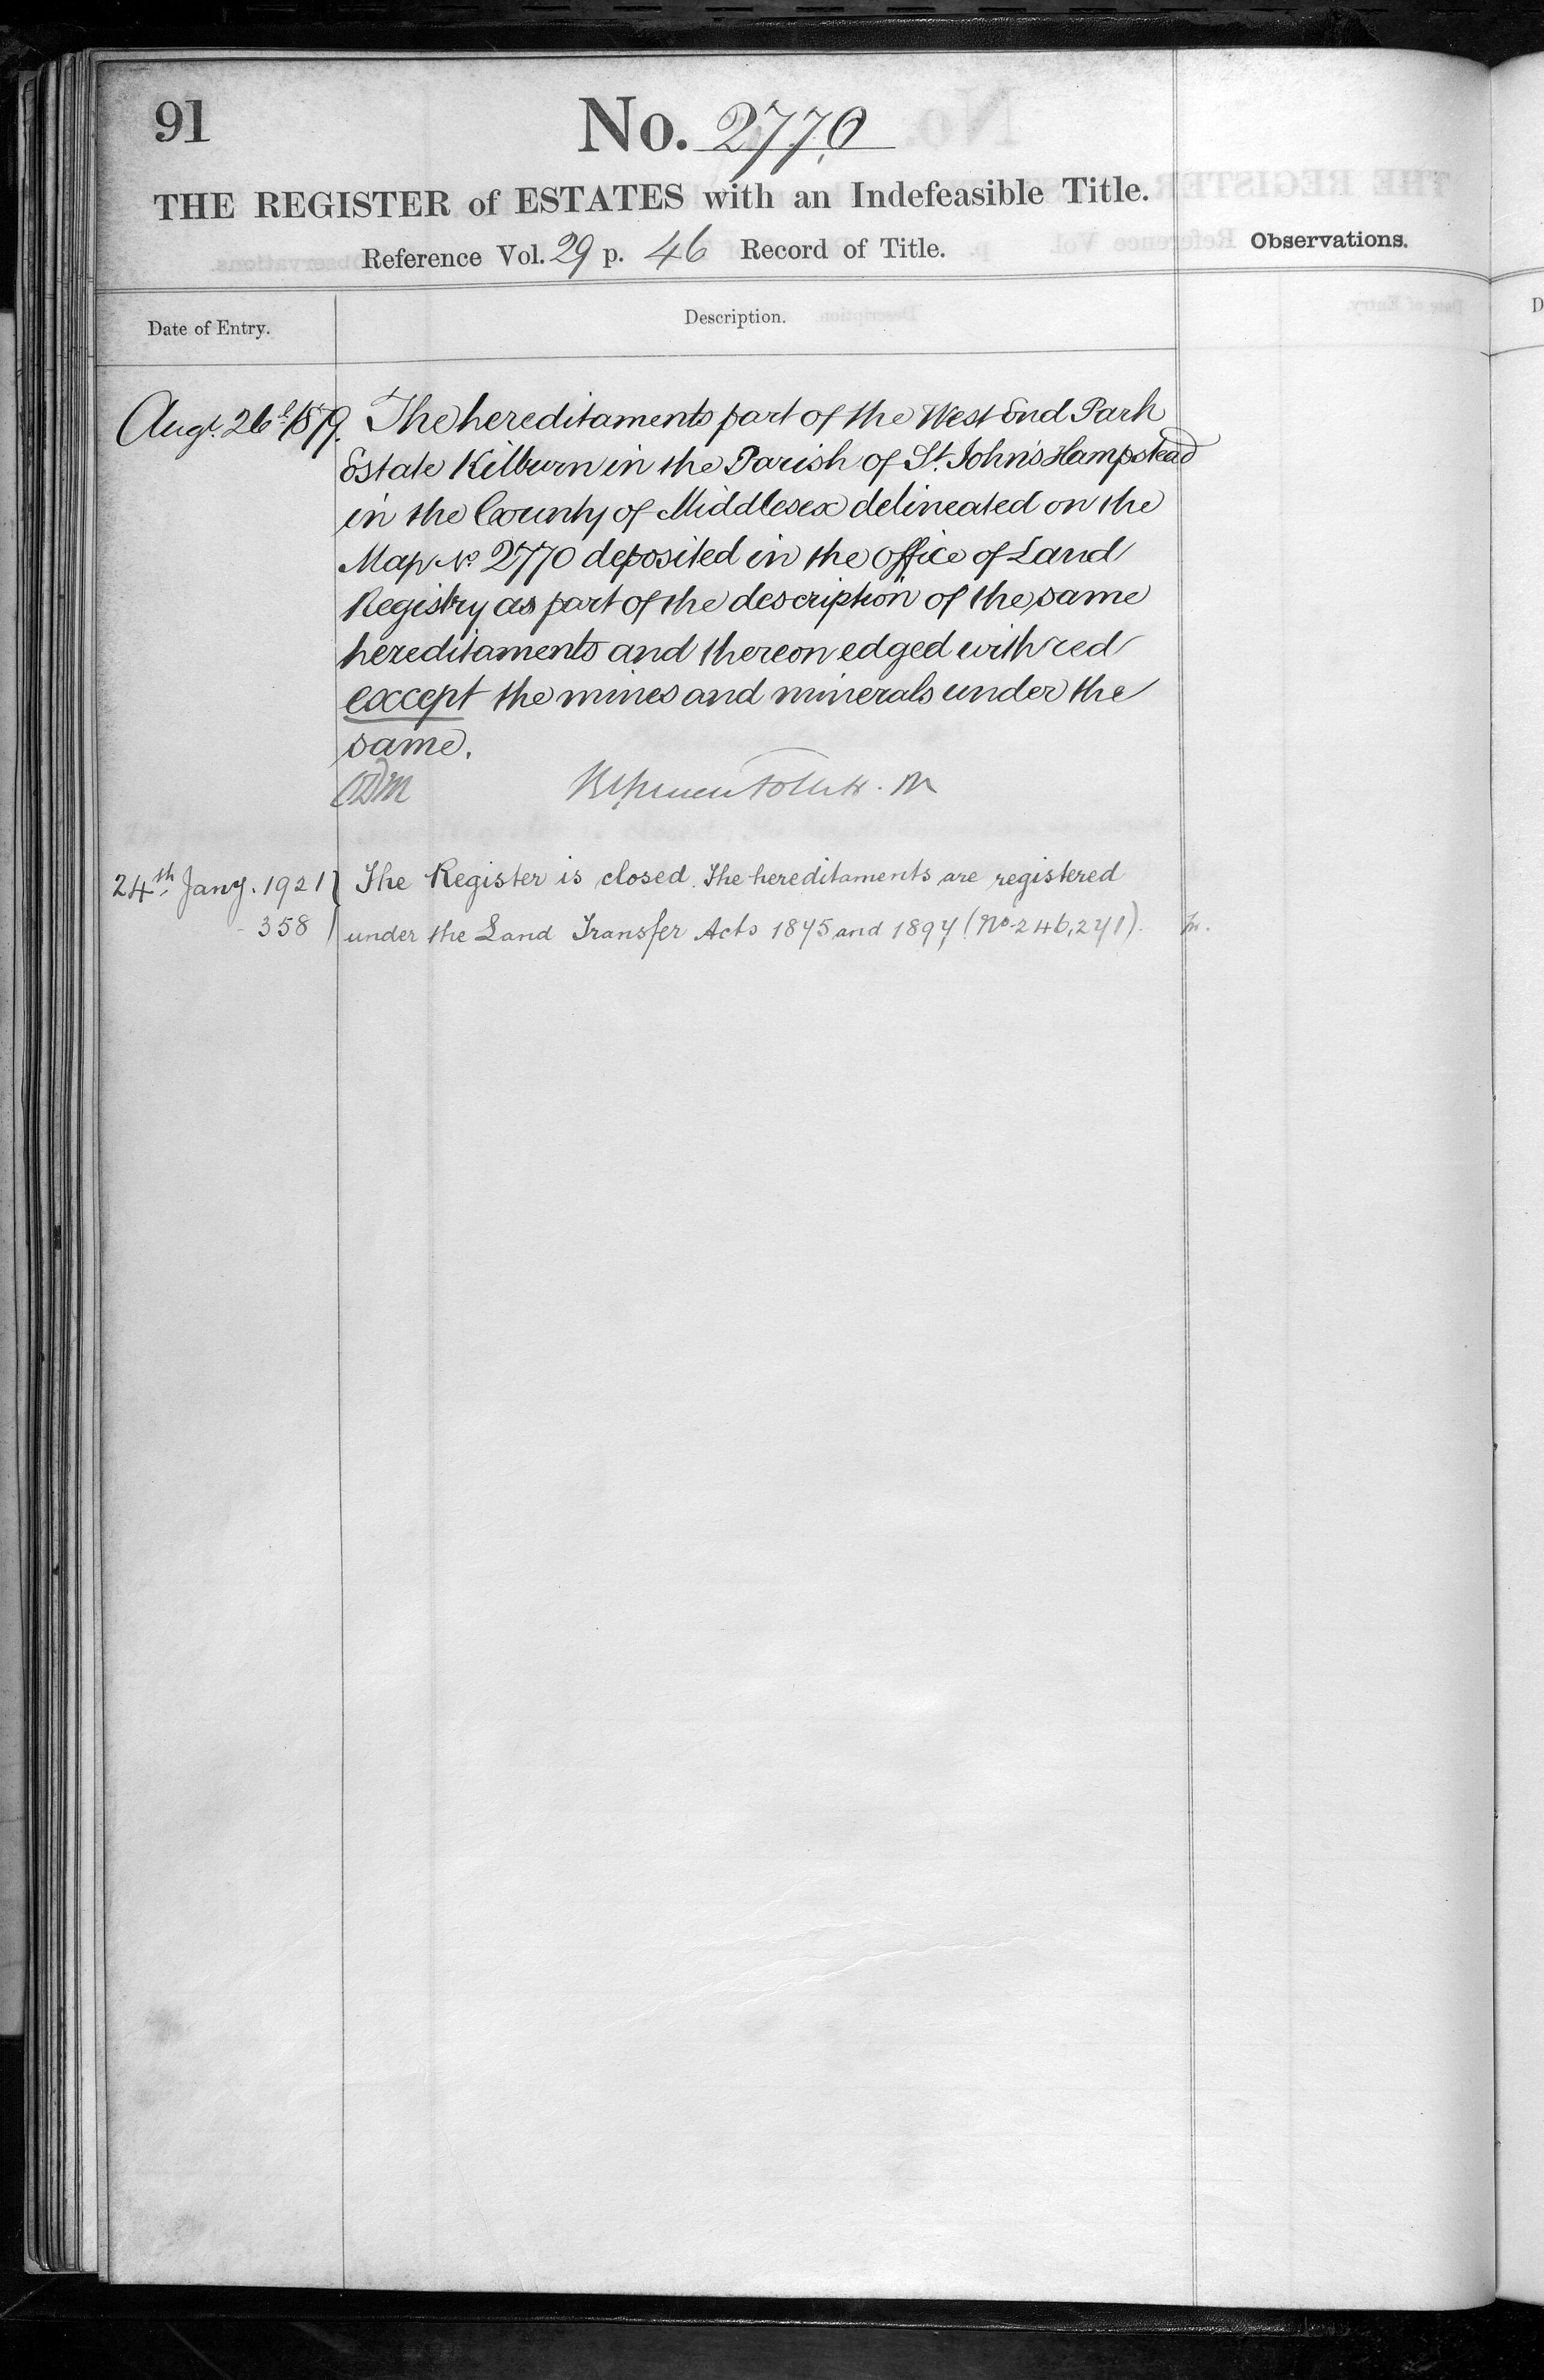 91
No. 2770
THE REGISTER of ESTATES with an Indefeasible Title.
Reference Vol. 29 p. 46 Record of Title.
Observations.
Date of Entry.
Description.
Augt. 26th 1879. The hereditaments part of the West End Park
Estate Kilburn in the Parish of St. John's Hampstead
in the County of Middlesex delineated on the
Map No. 2770 deposited in the office of Land
Registry as part of the description of the same
hereditaments and thereon edged with red
except the mines and minerals under the
same.
24th Jany. 1921 The Register is closed. The hereditaments are registered
358 under the Land Transfer Acts 1875 and 1897 (No. 246,271).